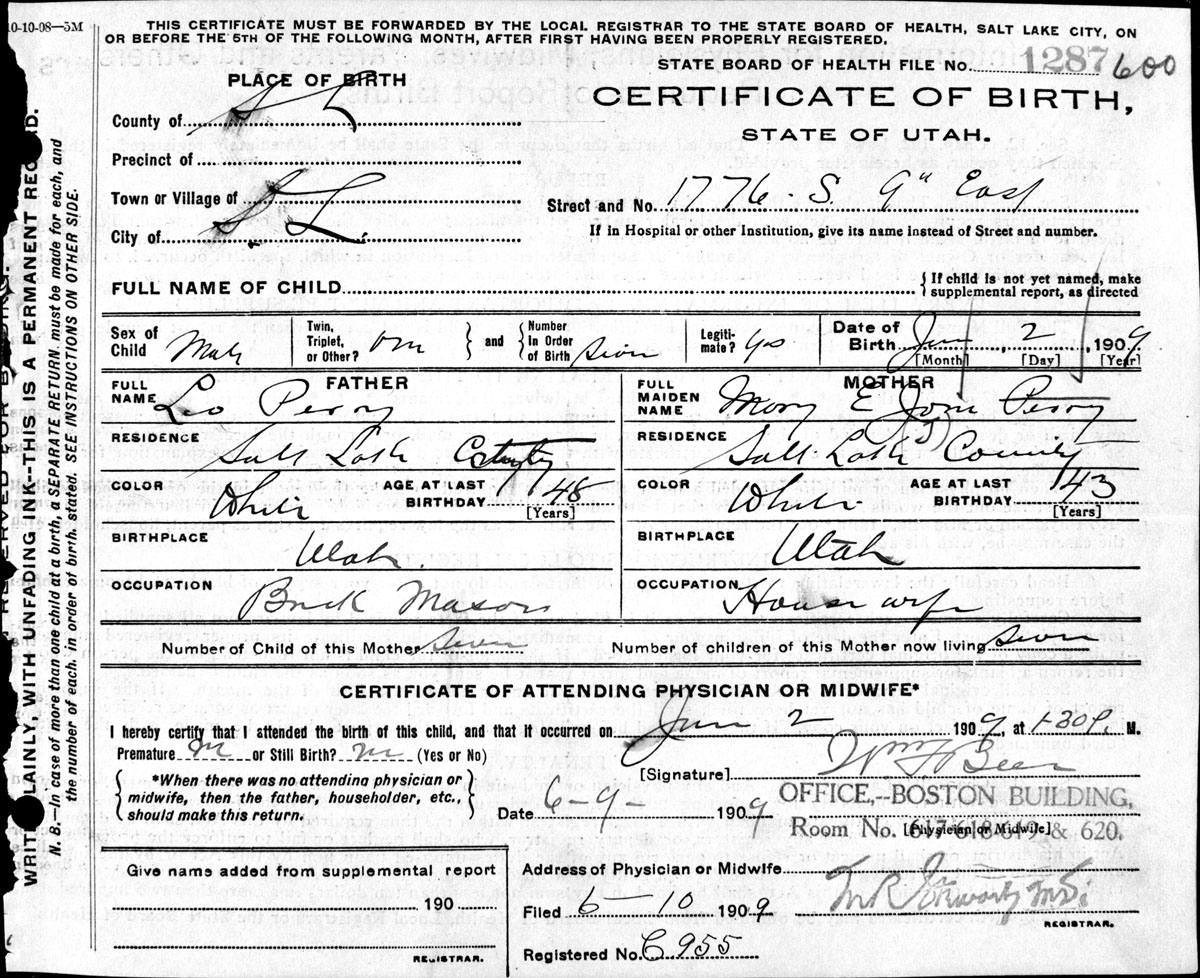 10-10-08—5M
THIS CERTIFICATE MUST BE FORWARDED BY THE LOCAL REGISTRAR TO THE STATE BOARD OF HEALTH, SALT LAKE CITY, ON
OR BEFORE THE 5TH OF THE FOLLOWING MONTH, AFTER FIRST HAVING BEEN PROPERLY REGISTERED.
STATE BOARD OF HEALTH FILE NO. 1287 600
PLACE OF BIRTH
CERTIFICATE OF BIRTH,
STATE OF UTAH.
County of S L
Precinct of
Town or Village of
City of S. L.
Street and No. 1776 - S. 9th East
If in Hospital or other Institution, give its name instead of Street and number.
FULL NAME OF CHILD
{ If child is not yet named, make
supplemental report, as directed
Sex of Child Male
Twin, Triplet, or Other? one } and { Number In Order of Birth seven
Legitimate? yes
Date of Birth June 2, 1909
[Month] [Day] [Year]
FATHER
FULL NAME Leo Perry
RESIDENCE Salt Lake
COLOR White
AGE AT LAST BIRTHDAY 48
[Years]
BIRTHPLACE Utah.
OCCUPATION Brick Mason
MOTHER
FULL MAIDEN NAME Mary E Perry
RESIDENCE Salt Lake County
COLOR White
AGE AT LAST BIRTHDAY 43
(Years)
BIRTHPLACE Utah
OCCUPATION House wife
Number of Child of this Mother seven
Number of children of this Mother now living seven
CERTIFICATE OF ATTENDING PHYSICIAN OR MIDWIFE*
I hereby certify that I attended the birth of this child, and that it occurred on June 2 1909, at 1-30 P. M.
Premature no or Still Birth? no (Yes or No)
{ *When there was no attending physician or
midwife, then the father, householder, etc.,
should make this return. }
[Signature] Wm F Beer
Date 6-9- 1909
OFFICE,--BOSTON BUILDING,
Room No. 617-618-619 & 620.
[Physician or Midwife]
Give name added from supplemental report
190
REGISTRAR.
Address of Physician or Midwife
Filed 6-10 1909
M.D.
REGISTRAR.
Registered No. C 955
WRITE PLAINLY, WITH UNFADING INK--THIS IS A PERMANENT RECORD.
N. B.—In case of more than one child at a birth, a SEPARATE RETURN must be made for each, and
the number of each, in order of birth, stated. SEE INSTRUCTIONS ON OTHER SIDE.